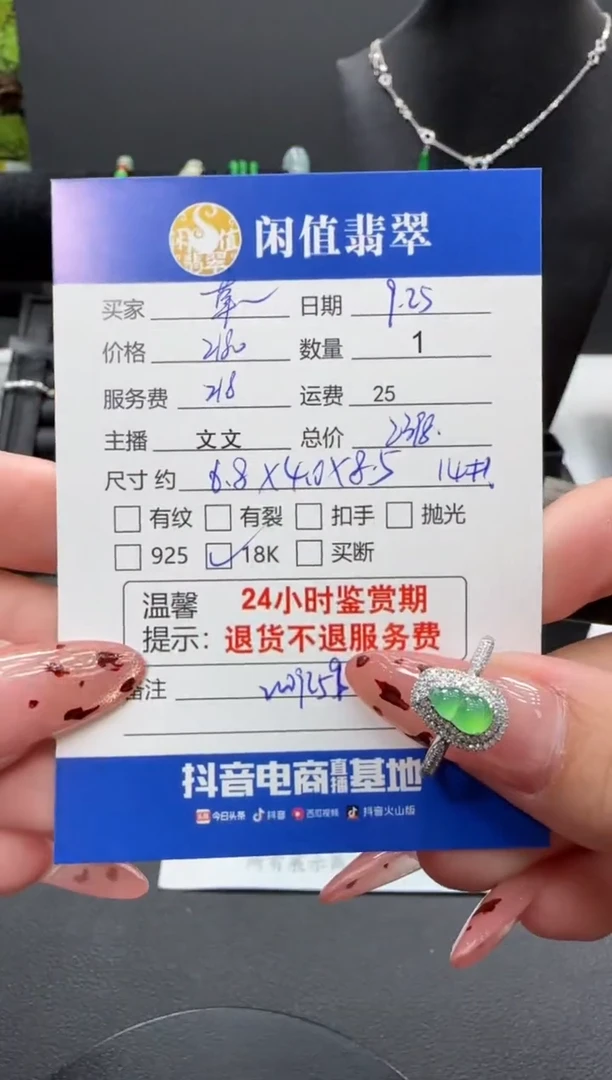 闲值翡翠
买家 日期 9.25
价格 2180 数量 1
服务费 218 运费 25
主播 文文 总价 2398.
尺寸约 6.8×4.0×8.5 14#
有纹 有裂 扣手 抛光
925 18K 买断
温馨提示: 24小时鉴赏期
退货不退服务费
备注
抖音电商直播基地
今日头条 抖音 西瓜视频 抖音火山版